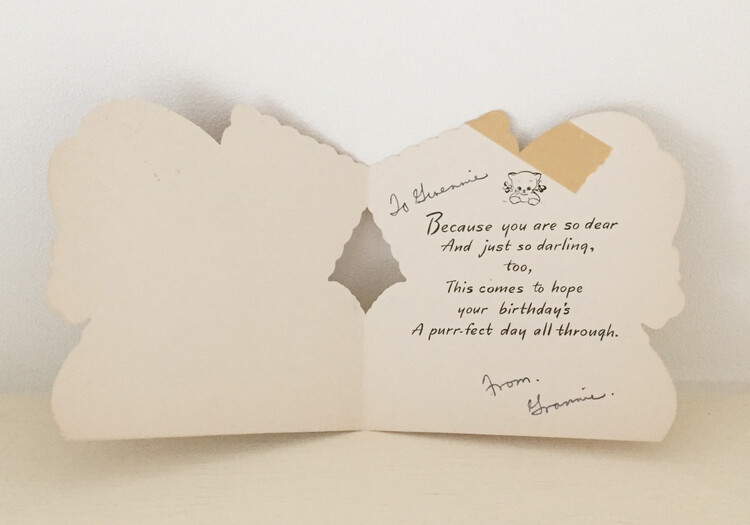 To Gwennie
Because you are so dear
And just so darling,
too,
This comes to hope
your birthday's
A purr-fect day all through.
From.
Grannie.